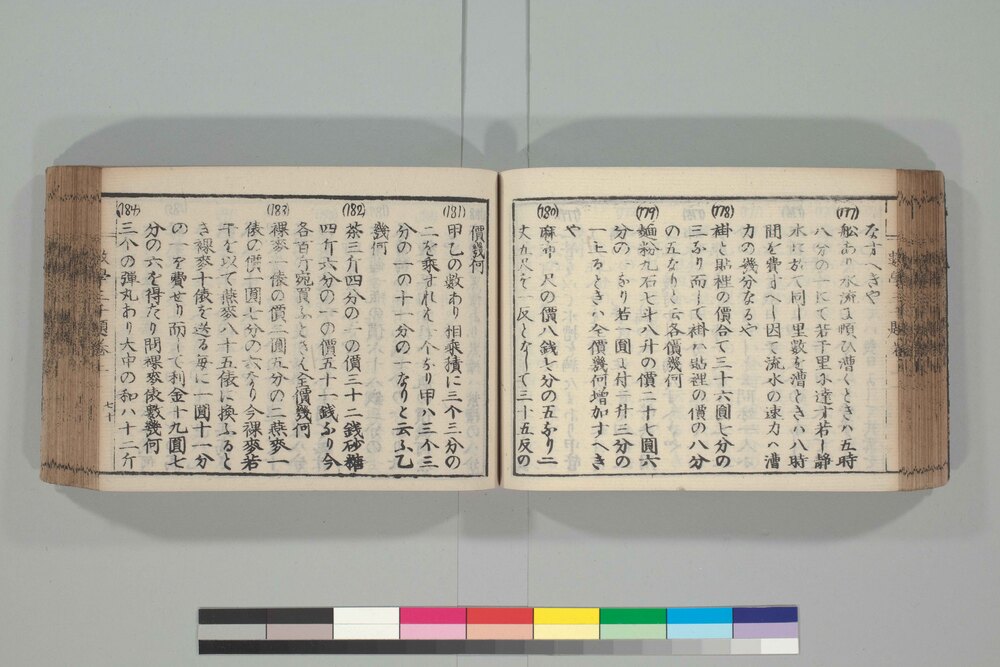 なすへきや
(177)
船あり水流に順ひ漕くときハ五時
八分の一にて若干里に達す若し静
水に於て同し里數を漕のきハ八時
間を費すへし因て流水の速力ハ漕
力の幾分なるや
(178)
褂と貼裡の價合て三十六圓七分の
三なり而して褂ハ貼裡の價の八分
の五なりと云各價幾何
(179)
麺粉九石七斗八升の價二十七圓六
分の一なり若一圓に付一升三分の
一上るときハ全價幾何增加すへき
や
(180)
麻布一尺の價八錢七分の五なり二
丈九尺を一反となして三十五反の
價幾何
(181)
甲乙の數あり相乘積に三个三分の
二を乘すれハ 个なり甲ハ三个三
分の一の十一分の一なりと云ふ乙
幾何
(182)
茶三斤四分の 價三十二錢砂糖
四斤六分の一の價五十 錢なり今
各百斤宛買ふときハ全價幾何
(183)
裸麥一俵の價二圓五分の二燕麥一
俵の價一圓七分の六なり今裸麥若
干を以て燕麥八十五俵に換ふると
き裸麥十俵を送る每に一圓十一分
の を費せり而して利金十九圓七
分の六を得たり問裸麥俵數幾何
(184)
三个の彈丸あり大中の和ハ十二斤